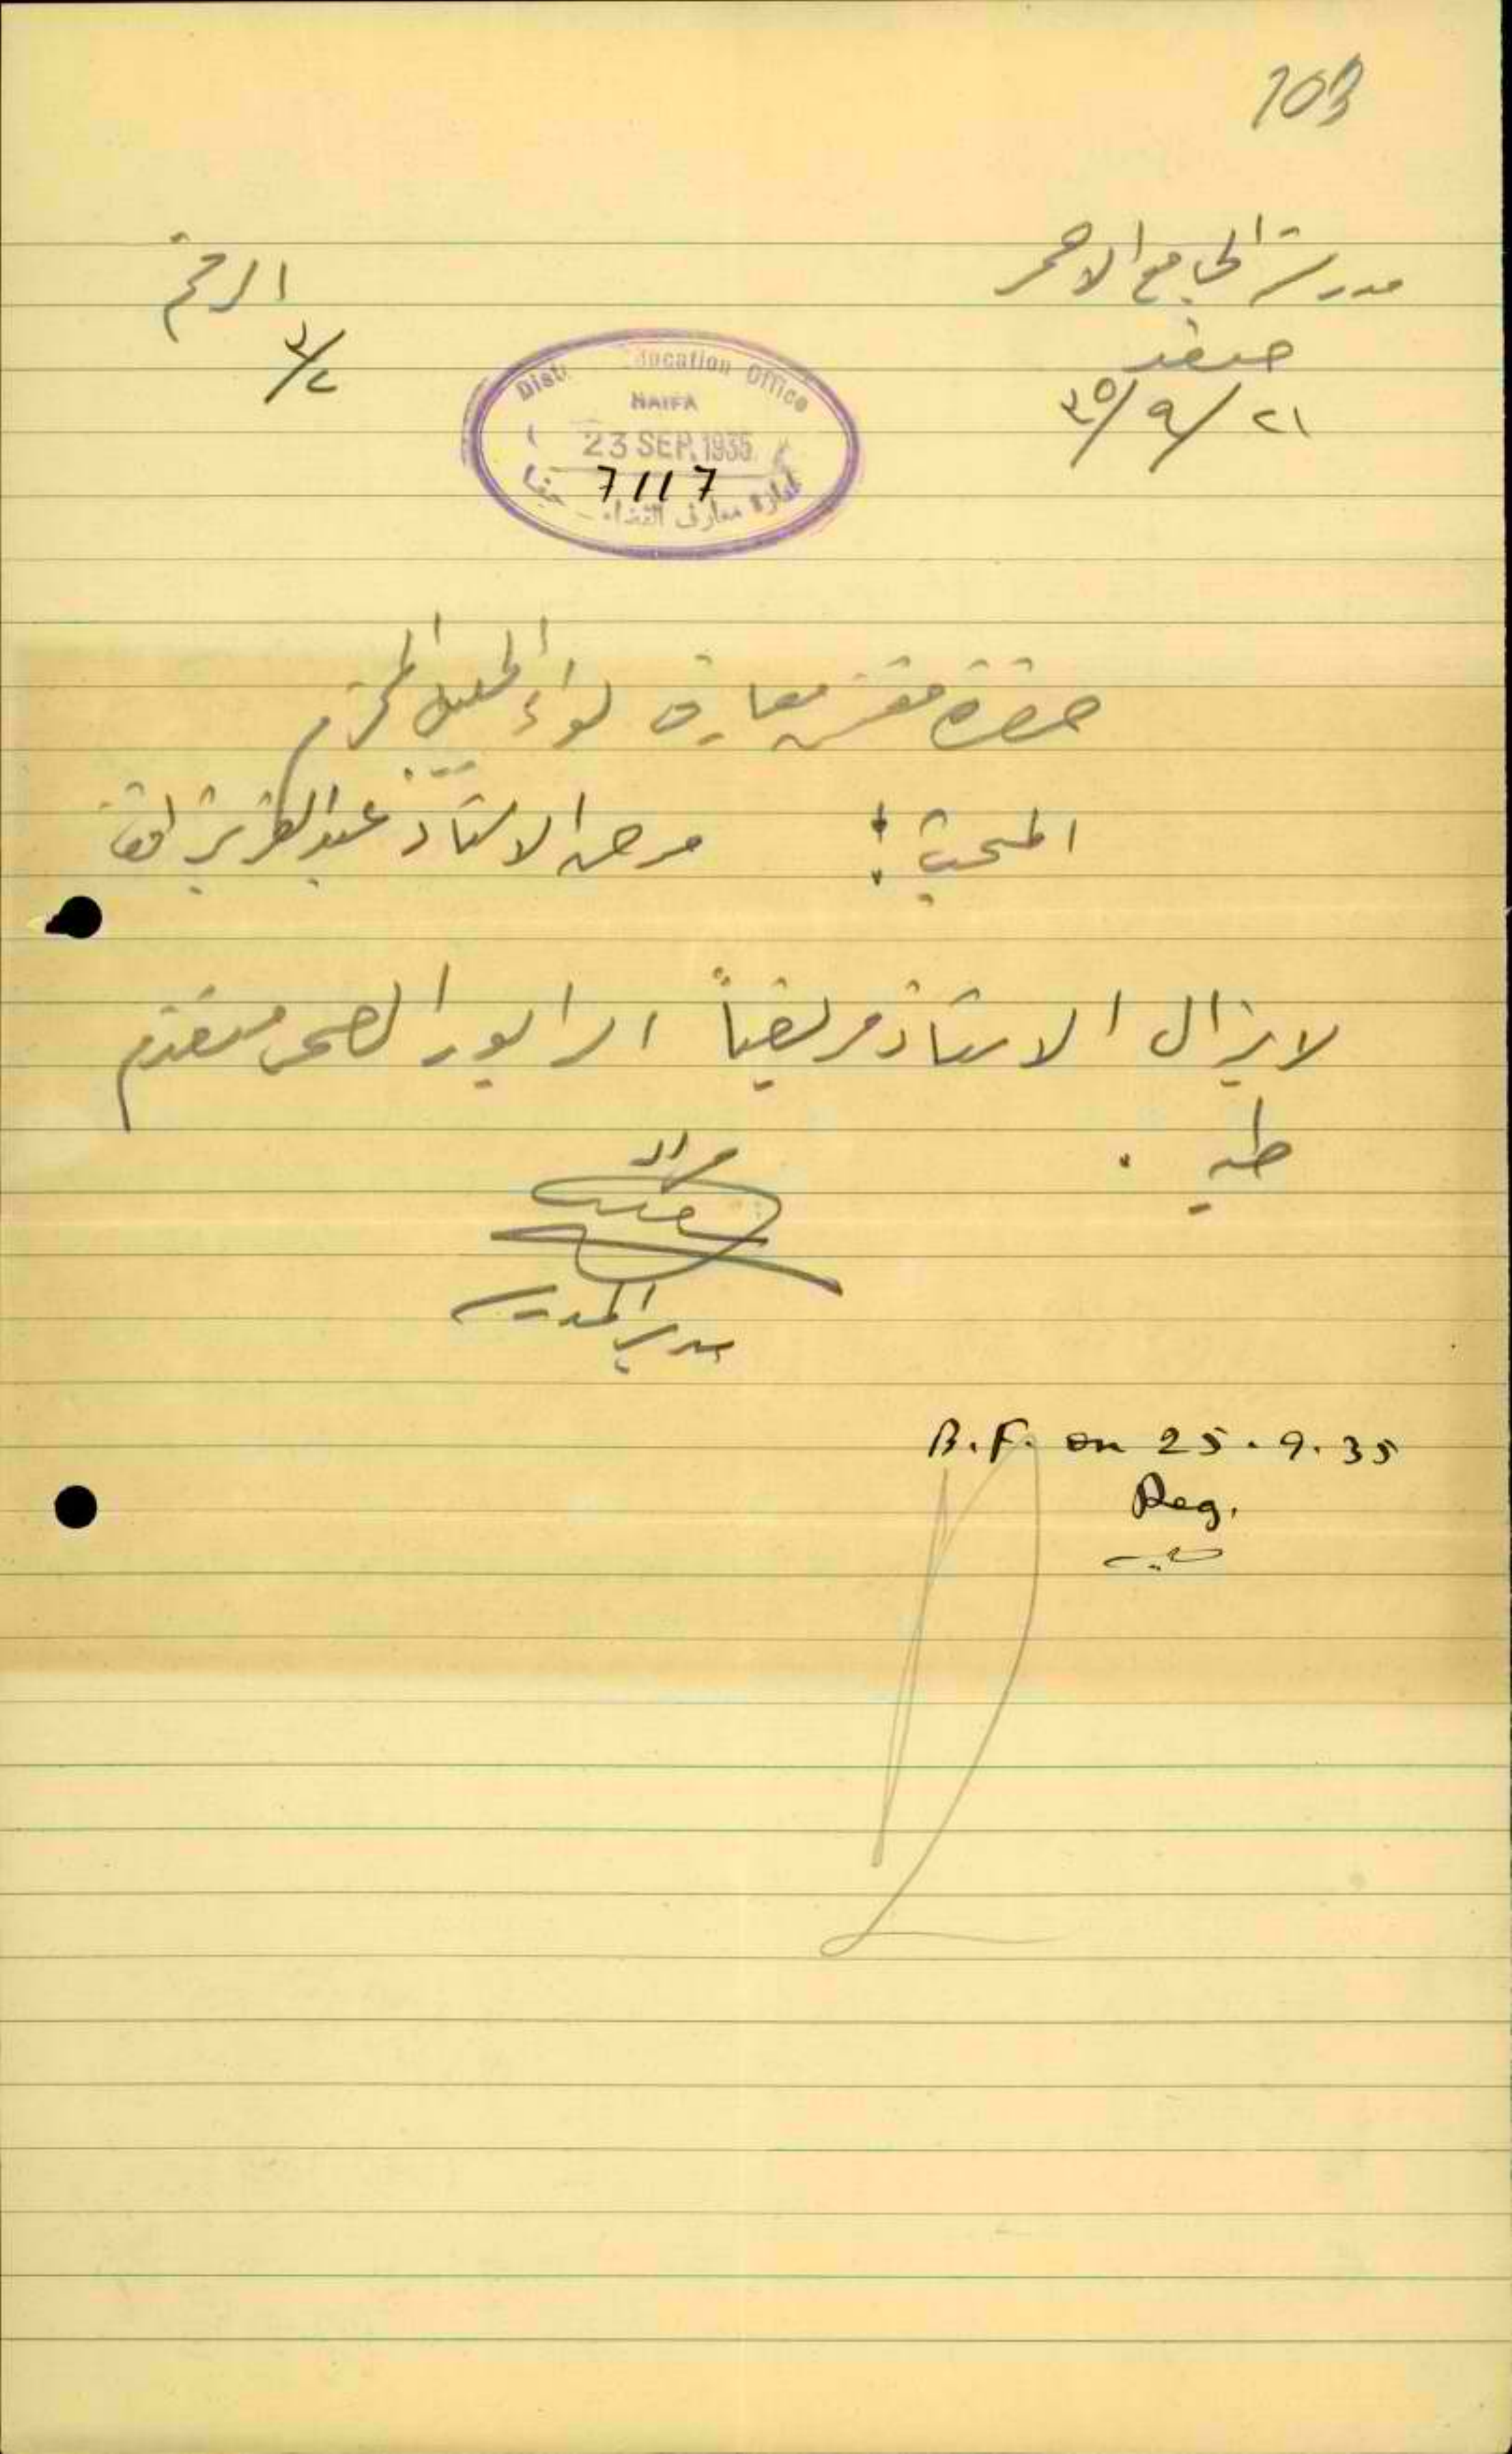 103
مدرسة الجامع الاحمر
صفد
٢١/٩/٣٥
الرقم
٣/٢
District Education Office
HAIFA
23 SEP. 1935
7117
ادارة معارف القضاء - حيفا
حضرة مفتش معارف لواء الجليل المحترم
المبحث : مرض الاستاذ عبد العزيز
لا يزال الاستاذ مريضاً الرابور الصحي مقدم
طيه .
مدير المدرسة
B.F. on 25.9.35
Reg.